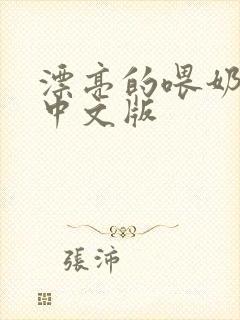 漂亮的喂奶
中文版
張沛